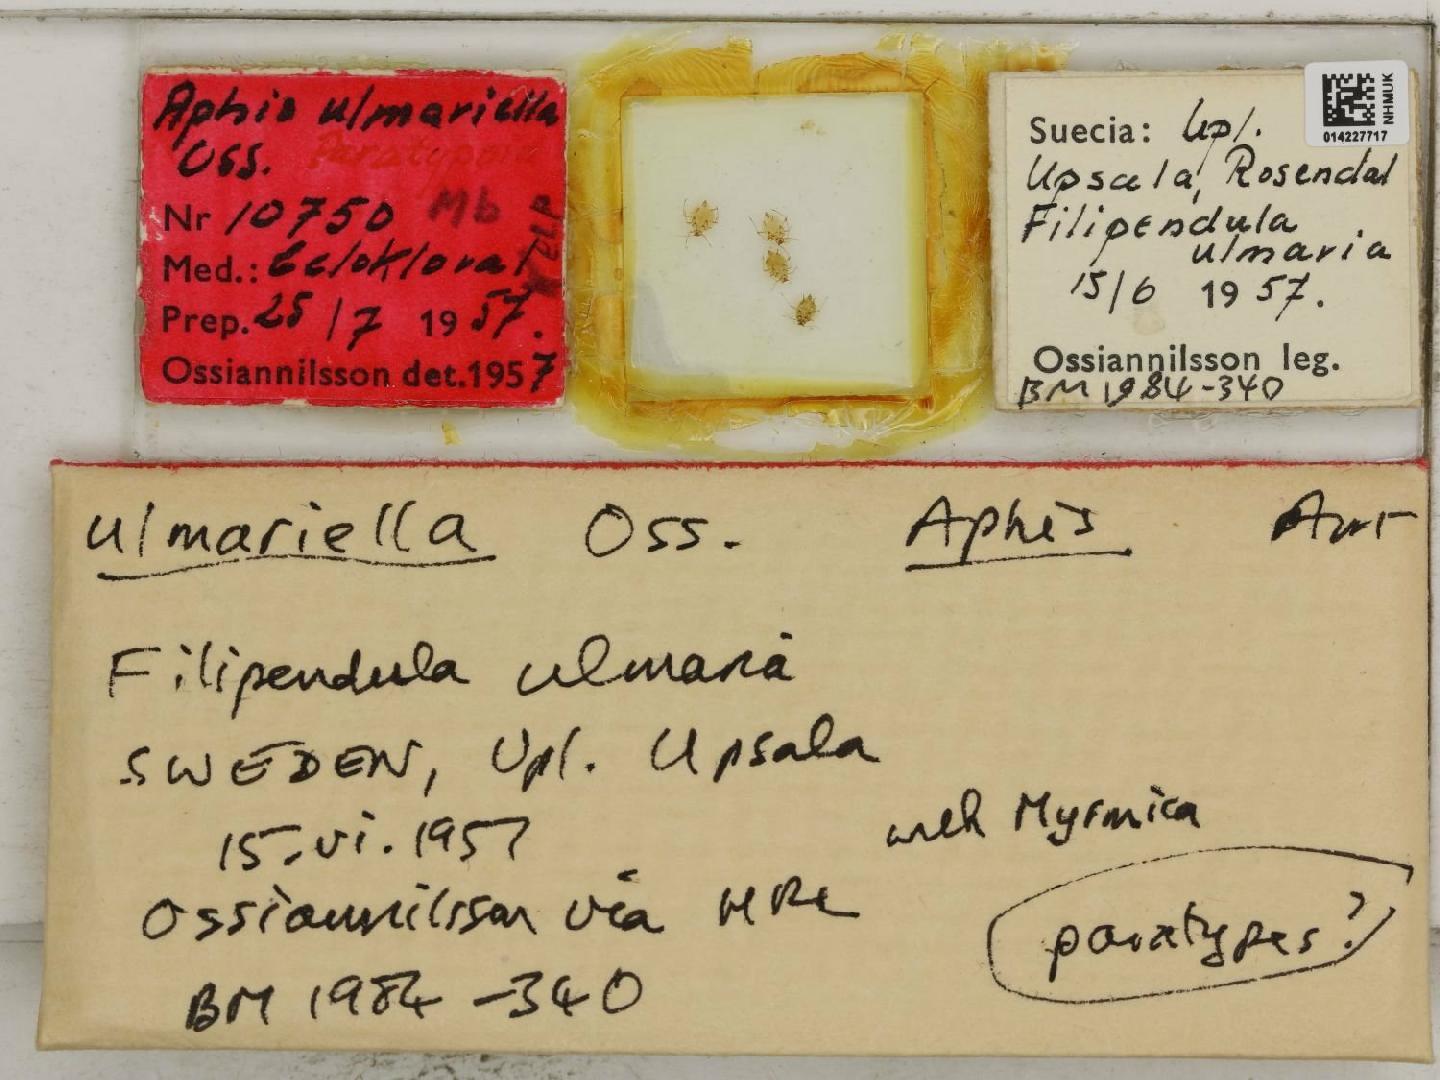 Aphis ulmariella
Oss. Paratypoid
Nr 10750 Mb
Med.: Celokloral
Prep. 25/7 1957.
Ossiannilsson det. 1957
Suecia: Upl.
Upsala, Rosendal
Filipendula
ulmaria
15/6 1957.
Ossiannilsson leg.
BM 1984-340
NHMUK
014227717
ulmariella Oss. Aphis
Filipendula ulmaria
SWEDEN, Upl. Upsala
15.vi.1957
with Myrmica
Ossiannilsson via HRL
paratypes?
BM 1984-340